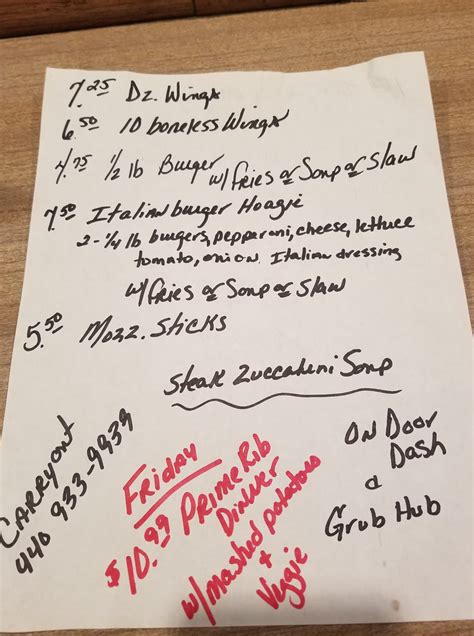 7.25 Dz. Wings
6.50 10 boneless Wings
4.75 1/2 lb Burger w/ Fries or Soup or Slaw
7.50 Italian burger Hoagie
2-1/4 lb burgers, pepperoni, cheese, lettuce
tomato, onion Italian dressing
w/ Fries or Soup or Slaw
5.50 Mozz. Sticks
Steak Zuccahini Soup
CARRYOUT
440 933-9939
FRIDAY
$10.99 PRIME RIB
DINNER
w/ mashed potatoes
+
Veggie
ON DOOR
DASH
&
Grub Hub